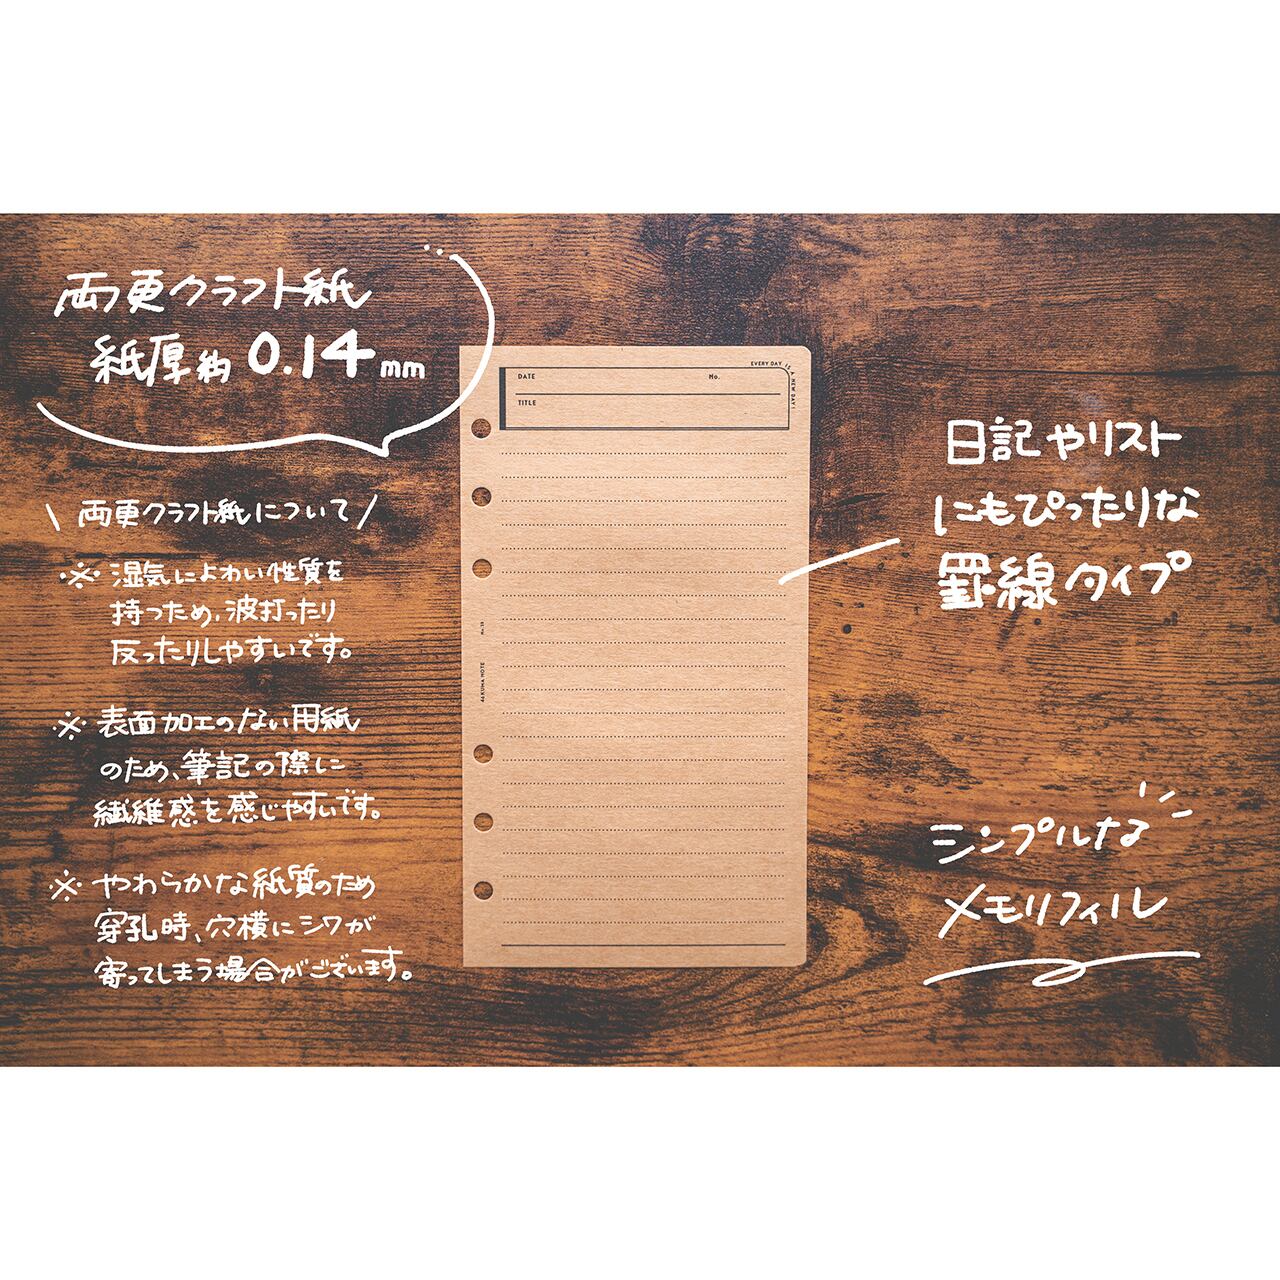 両更クラフト紙
紙厚約0.14mm
\ 両更クラフト紙について /
※ 湿気によわい性質を
持つため、波打ったり
反ったりしやすいです。
※ 表面加工のない用紙
のため、筆記の際に
繊維感を感じやすいです。
※ やわらかな紙質のため
穿孔時、穴横にシワが
寄ってしまう場合がございます。
EVERY DAY IS A NEW DAY!
DATE No.
TITLE
46KUMA NOTE
日記やリスト
にもぴったりな
罫線タイプ
シンプルな
メモリフィル